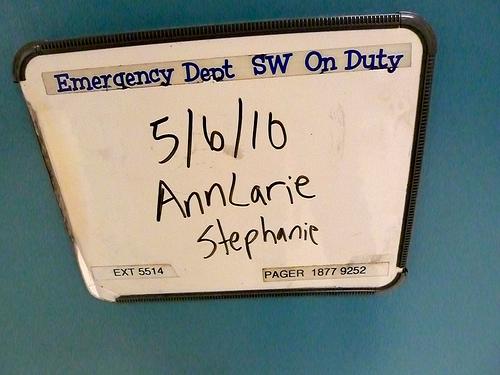 Emergency Dept SW On Duty
5/6/10
AnnLarie
Stephanie
EXT 5514 PAGER 1877 9252